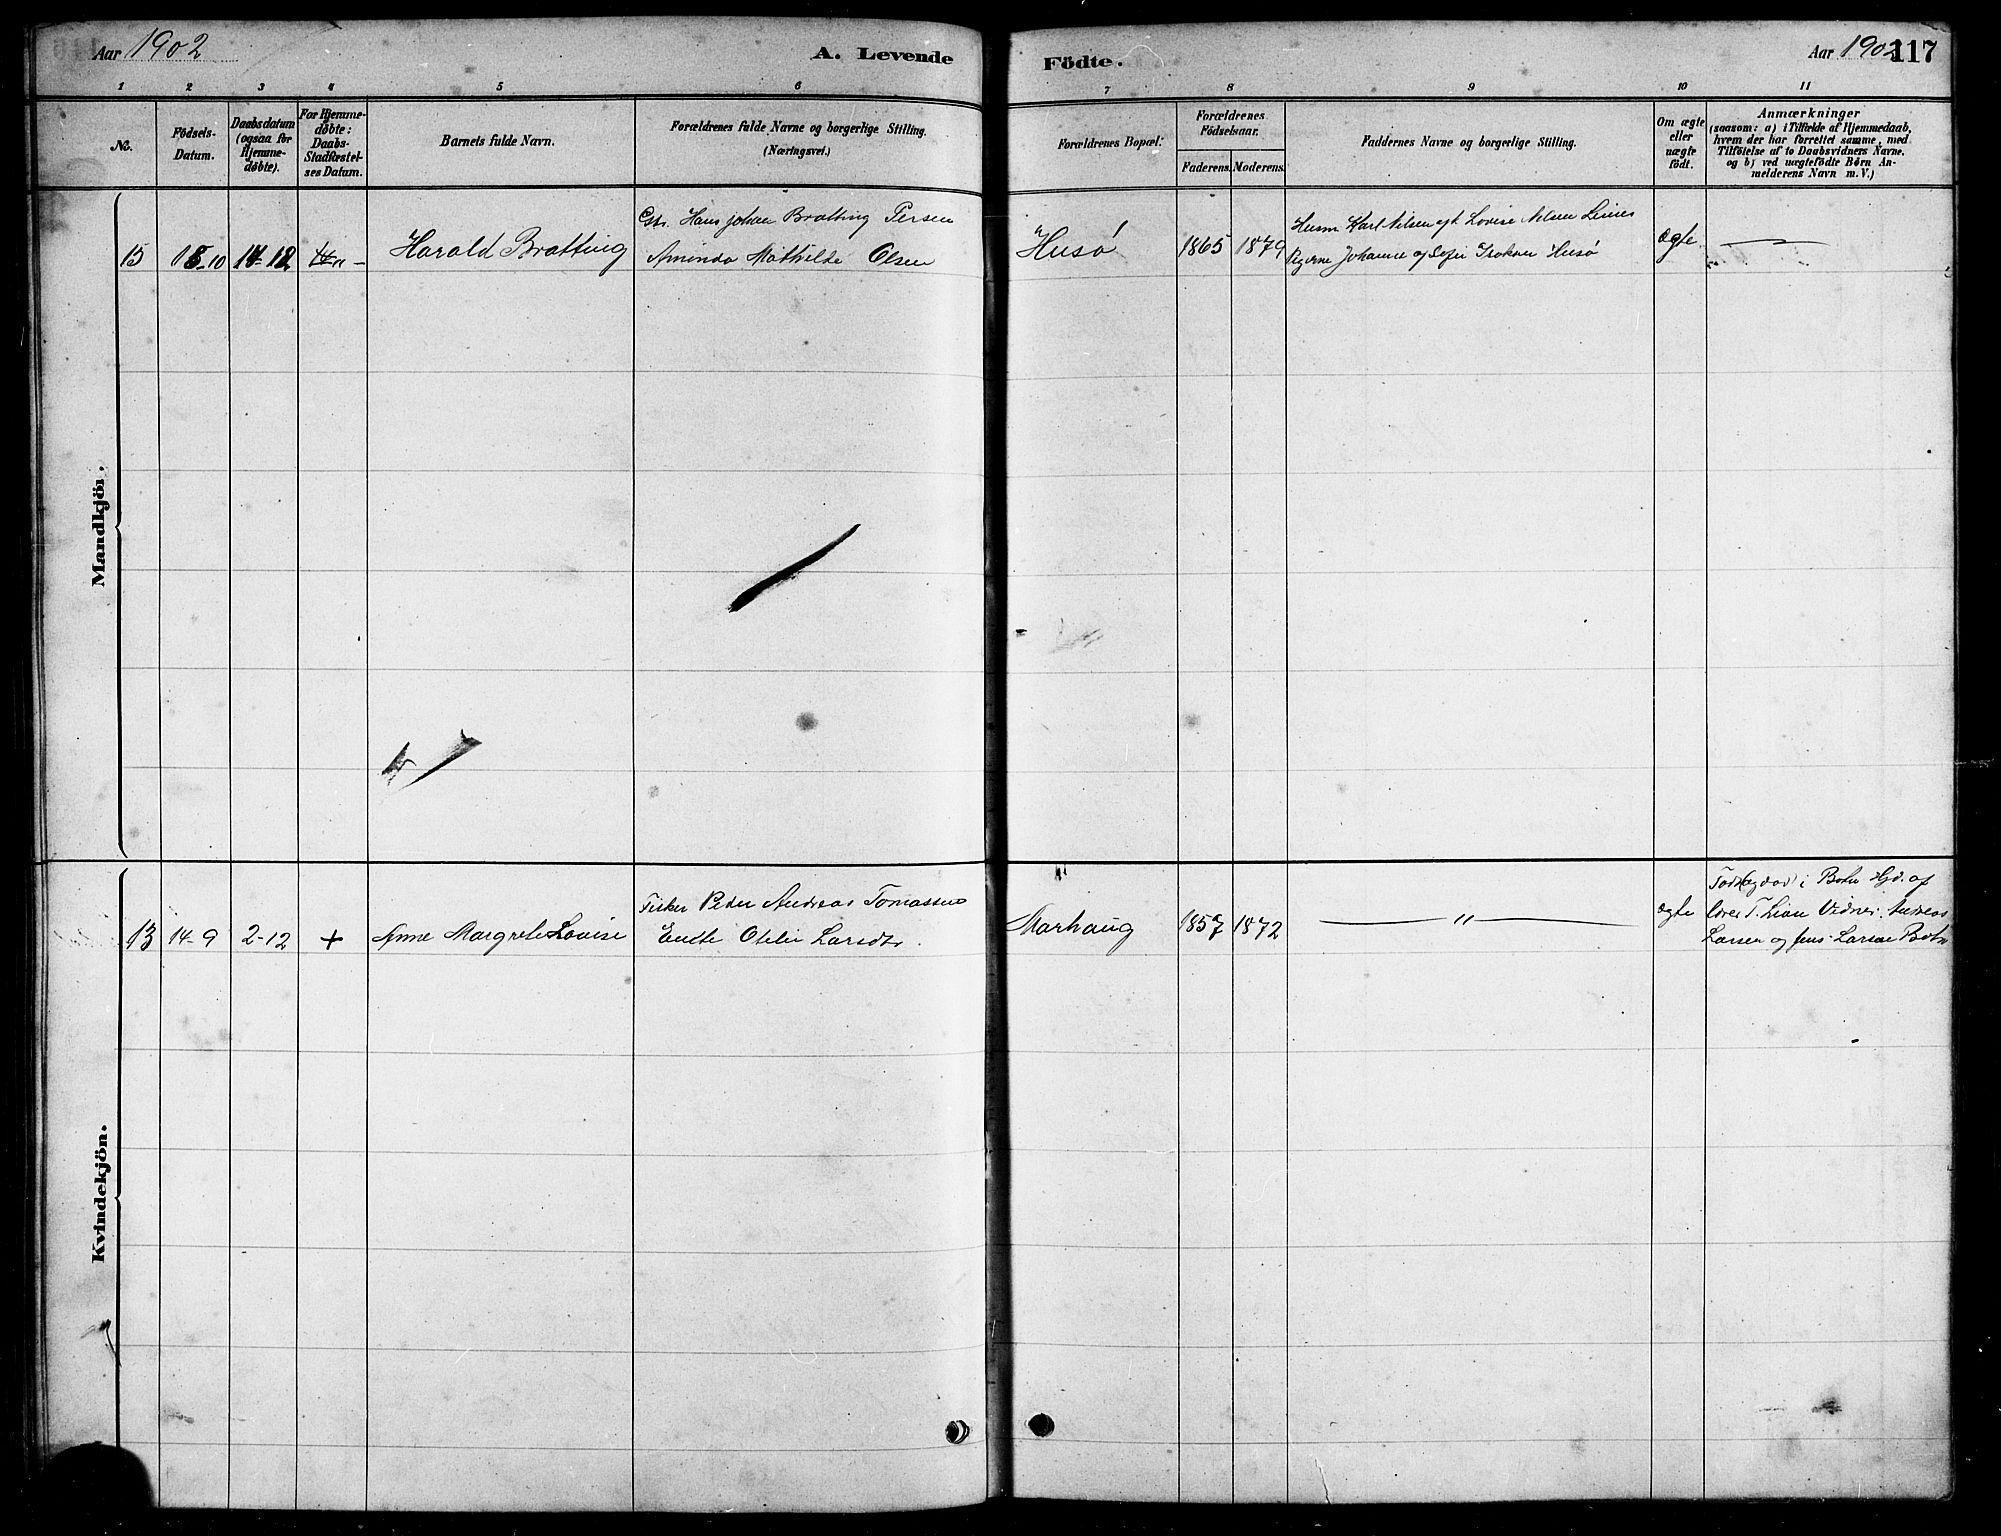 Aar 1902
A. Levende
Födte.
Aar 1902
117
1 2 3 4 5 6 7 8 9 10 11
No.
Födsels-
Datum.
Daabsdatum
(ogsaa for
Hjemme-
døbte).
For Hjemme-
døbte:
Daabs-
Stadfæstel-
ses Datum.
Barnets fulde Navn.
Forældrenes fulde Navne og borgerlige Stilling.
(Næringsvei.)
Forældrenes Bopæl.
Forældrenes
Födselsaar.
Faderens. Moderens.
Faddernes Navne og borgerlige Stilling.
Om ægte
eller
uægte
født.
Anmærkninger
(saasom: a) i Tilfælde af Hjemmedaab,
hvem der har forrettet samme, med
Tilföielse af to Daabsvidners Navne.
og b) ved uægtefødte Børn An-
melderens Navn m. V.)
Mandkjön.
15
-10
-12
Harald Bratting
Hans Johan Bratting Persen
Aminda Mathilde Olsen
Husø
1865 1879
Husm Karl Nilsen Lovise Nilsen
Pigerne Johanne og Husø
Ægte
Kvindekjön.
13 14-9 2-12 +
Anne Margrete Lovise
Fisker Peder Andreas Tomassen
Larsdtr.
Marhaug
1857 1872
"
Ægte
i af
T. Lian Vidner: Andreas
Larsen og Jens Larsen